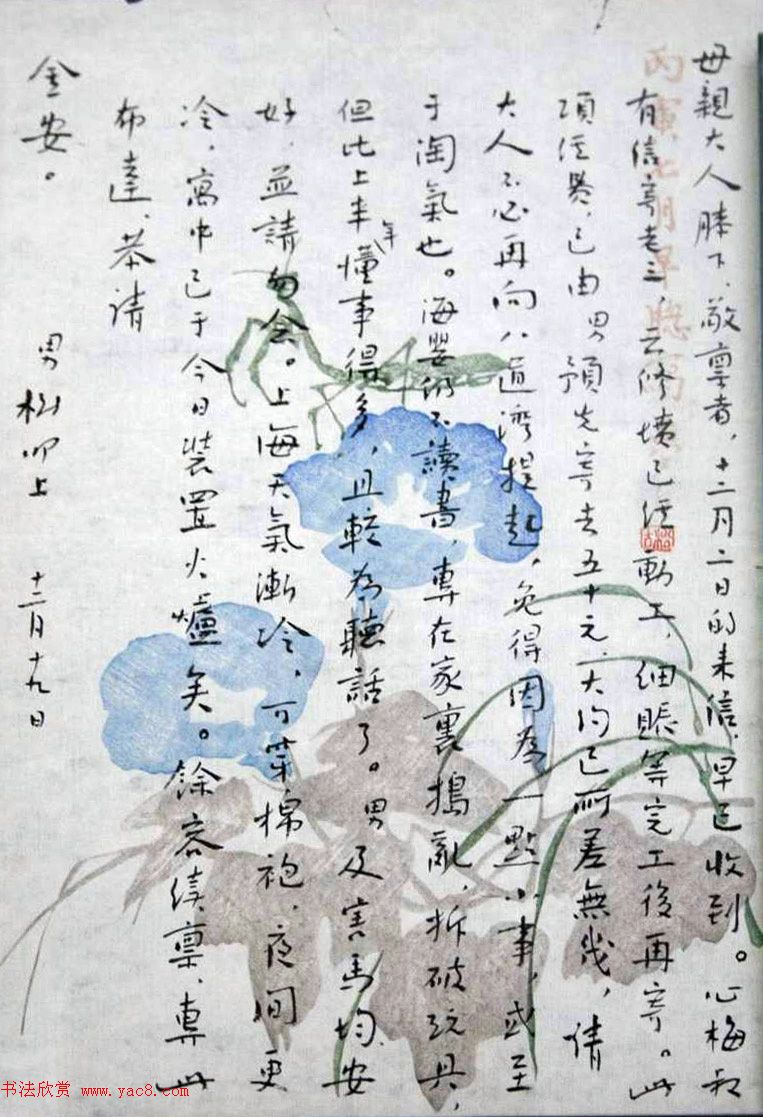 母親大人膝下，敬禀者，十二月二日的来信，早已收到。心梅叔
有信寄老三，云修墳已经動工，細賬等完工後再寄。此
項经費，已由男預先寄去五十元，大约已所差無幾，请
大人不必再向八道湾提起，免得因为一點小事，或至
于淘氣也。海嬰仍不讀書，專在家裏搗亂，拆破玩具，
但比上半年懂事得多，且較为聽話了。男及害馬均安
好，並請勿念。上海天氣漸冷，可穿棉袍，夜间更
冷，寓中已于今日装置火爐矣。餘容续禀，專此
布達，恭请
金安。
男樹叩上 十二月十九日
丙寅七月早
书法欣赏 www.yac8.com